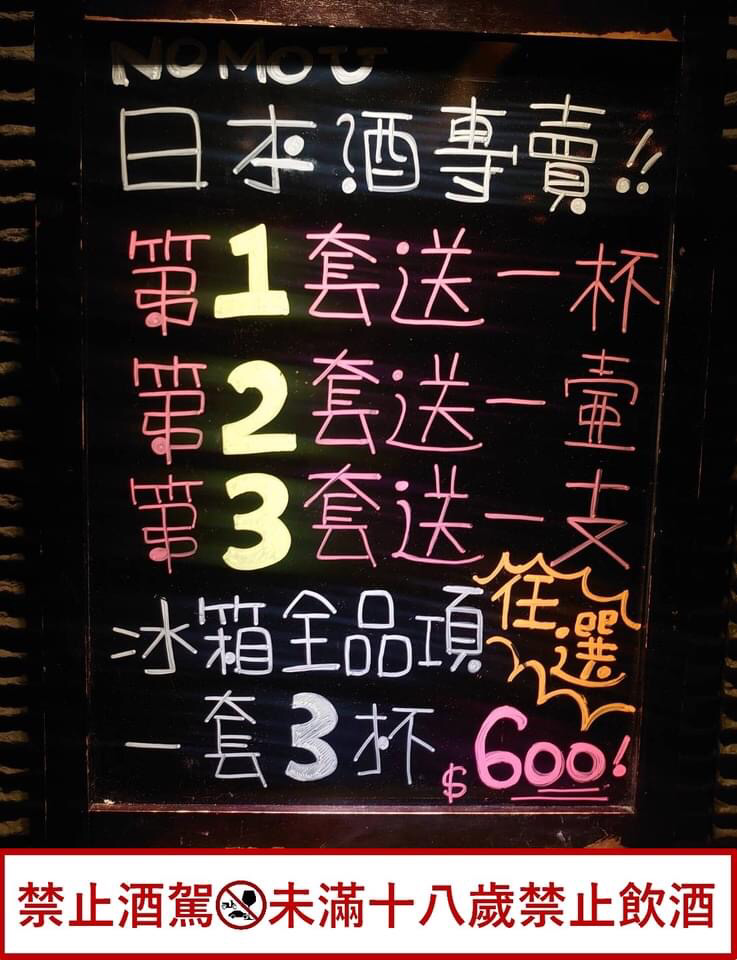 NOMOU
日本酒專賣!!
第1套送一杯
第2套送一壺
第3套送一支
冰箱全品項任選
一套3杯$600!
禁止酒駕 未滿十八歲禁止飲酒